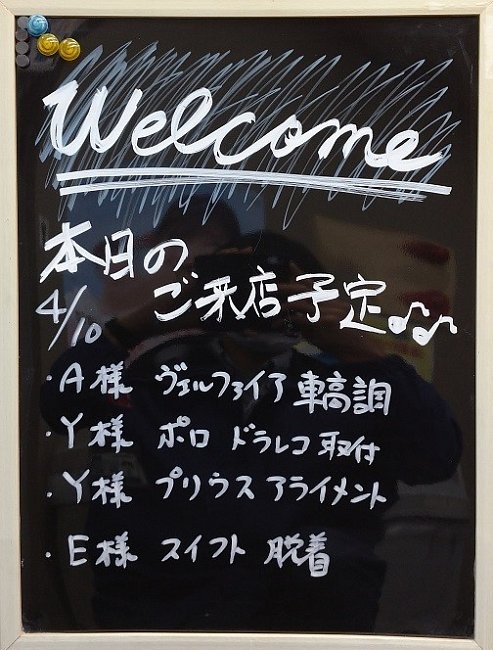 Welcome
本日の
4/10 ご来店予定♪♫
・A様 ヴェルファイア 車高調
・Y様 ポロ ドラレコ 取付
・Y様 プリウス アライメント
・E様 スイフト 脱着